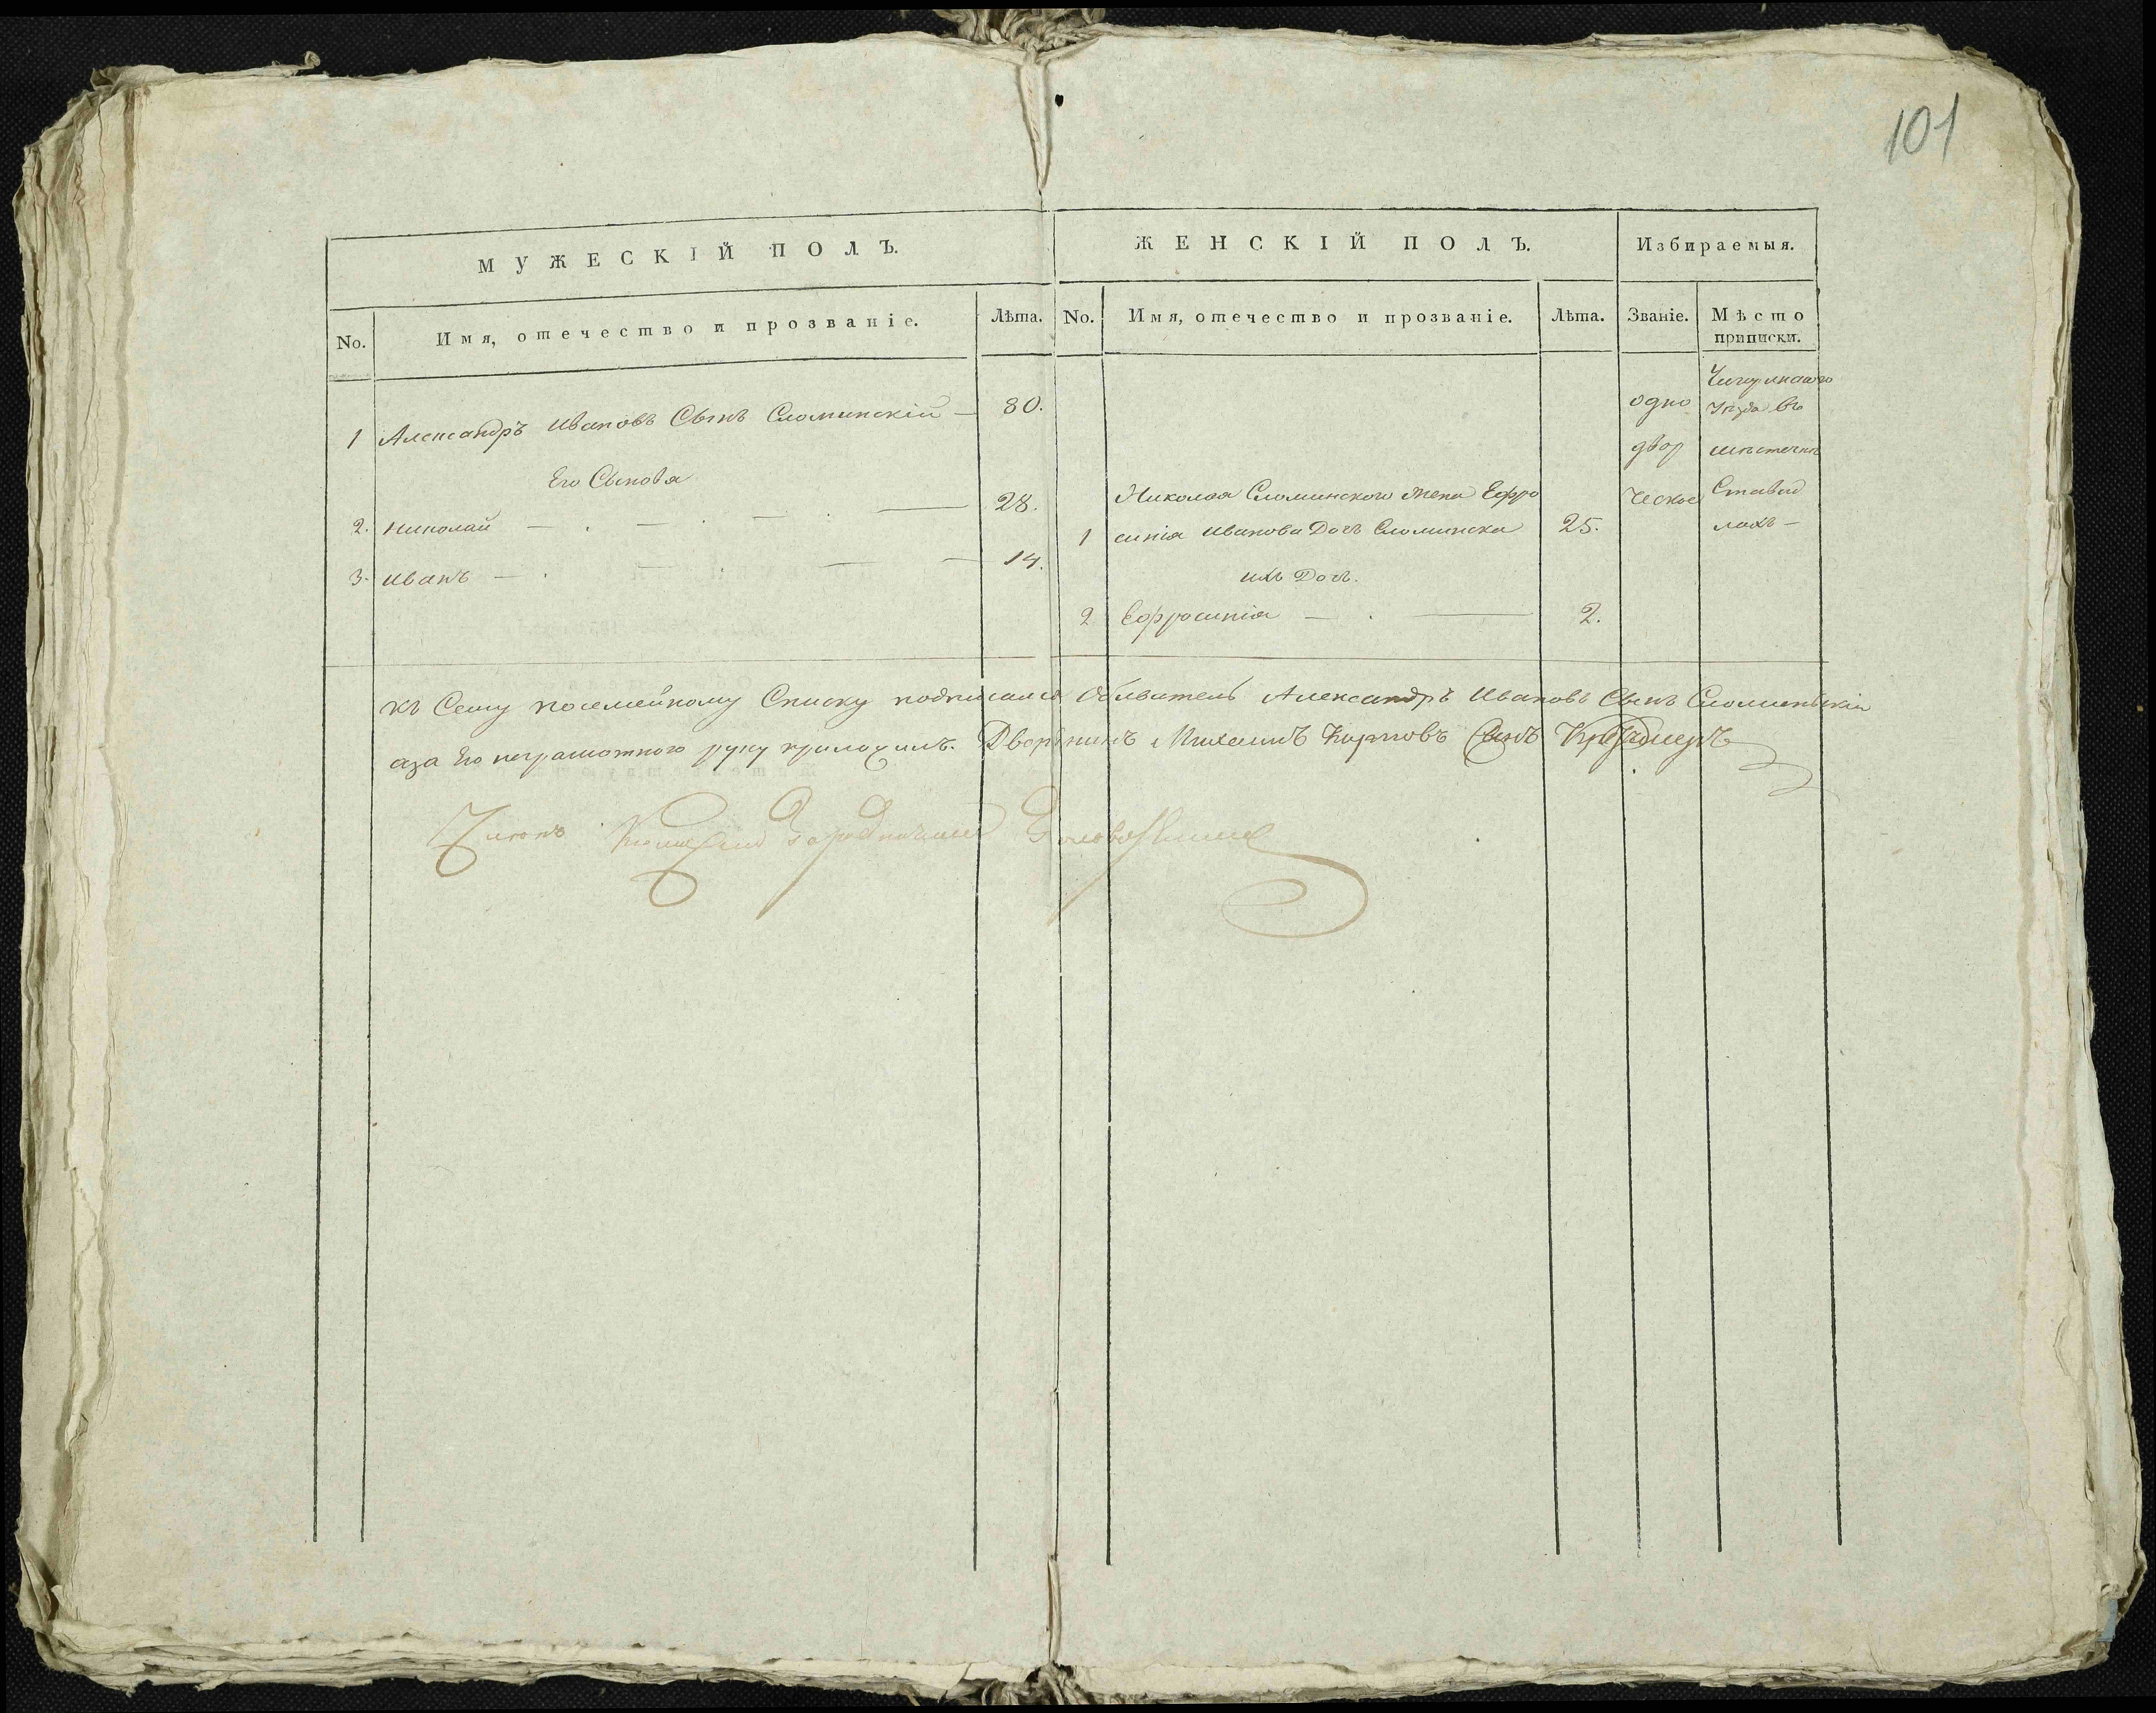 101
МУЖЕСКІЙ ПОЛЪ.
ЖЕНСКІЙ ПОЛЪ.
Избираемыя.
No.
Имя, отечество и прозваніе.
Лѣта.
No.
Имя, отечество и прозваніе.
Лѣта.
Званіе.
Мѣсто
приписки.
1 Александръ Ивановъ Сынъ Сломинскій — 80.
Его Сыновья
2. Николай — . — . — . — 28.
3. Иванъ — . — . — — 14.
Николая Сломинского жена Ефро
1 синія Иванова Дочь Сломинска 25.
ихъ Дочь.
2 Ефросинія — . — 2.
одно
двор
ческое
Чигиринскаго
уѣзда въ
мѣстечкѣ
Ставид
лахъ —
къ Сему посемейному Списку подписался Обыватель Александръ Ивановъ Сынъ Сломинскій
аза Его неграмотного руку приложилъ. Дворянинъ Михаилъ Карповъ Сынъ
Членъ